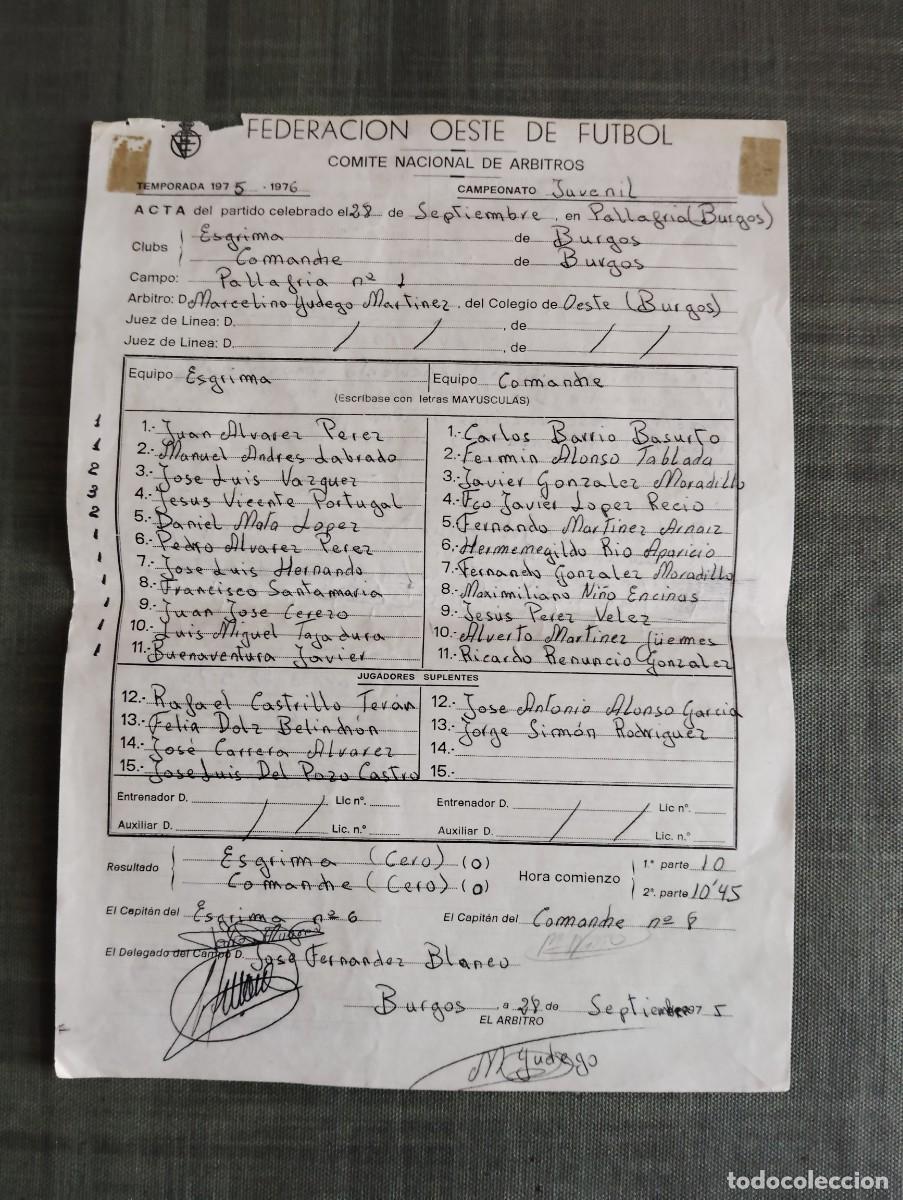 FEDERACION OESTE DE FUTBOL
COMITE NACIONAL DE ARBITROS
TEMPORADA 1975 - 1976 CAMPEONATO Juvenil
ACTA del partido celebrado el 28 de Septiembre, en Pallafria (Burgos)
Clubs Esgrima de Burgos
Comanche de Burgos
Campo: Pallafria nº 1
Arbitro: D. Marcelino Yudego Martinez, del Colegio de Oeste (Burgos)
Juez de Linea: D. / / , de / /
Juez de Linea: D. / / , de / /
Equipo Esgrima Equipo Comanche
(Escríbase con letras MAYUSCULAS)
1.- Juan Alvarez Perez 1.- Carlos Barrio Basurto
2.- Manuel Andres Labrado 2.- Fermin Alonso Tablada
3.- Jose Luis Vazquez 3.- Javier Gonzalez Moradillo
4.- Jesus Vicente Portugal 4.- Fco Javier Lopez Recio
5.- Daniel Mata Lopez 5.- Fernando Martinez Arnaiz
6.- Pedro Alvarez Perez 6.- Hermemegildo Rio Aparicio
7.- Jose Luis Hernando 7.- Fernando Gonzalez Moradillo
8.- Francisco Santamaria 8.- Maximiliano Niño Encinas
9.- Juan Jose Cerezo 9.- Jesus Perez Velez
10.- Luis Miguel Tajadura 10.- Alverto Martinez Güemes
11.- Buenaventura Javier 11.- Ricardo Renuncio Gonzalez
1
1
2
3
2
1
1
1
1
1
1
JUGADORES SUPLENTES
12.- Rafael Castrillo Terán 12.- Jose Antonio Alonso Garcia
13.- Felix Dolz Belinchón 13.- Jorge Simón Rodriguez
14.- José Carrera Alvarez 14.-
15.- Jose Luis Del Pozo Castro 15.-
Entrenador D. / / Lic nº. Entrenador D. / / Lic nº.
Auxiliar D. / / Lic. n.º Auxiliar D. / / Lic. n.º
Resultado Esgrima (Cero) (0) Hora comienzo 1.ª parte 10
Comanche (Cero) (0) 2.ª parte 10'45
El Capitán del Esgrima nº 6 El Capitán del Comanche nº 8
El Delegado del Campo D. Jose Fernandez Blanco
Burgos, a 28 de Septiembre 1975
EL ARBITRO
M Yudego
todocoleccion